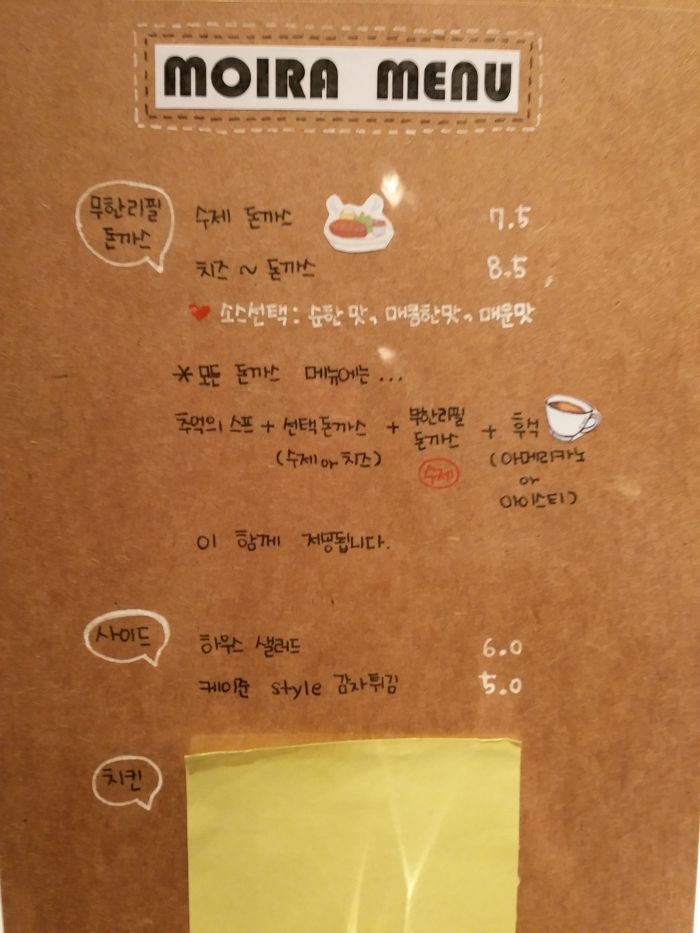 MOIRA MENU
무한리필
돈까스
수제 돈까스 7.5
치즈 ~ 돈까스 8.5
소스선택: 순한맛, 매콤한맛, 매운맛
* 모든 돈까스 메뉴에는 ...
추억의 스프 + 선택돈까스 + 무한리필 돈까스 + 후식
(수제 or 치즈) 수제 (아메리카노
or
아이스티)
이 함께 제공됩니다.
사이드
하우스 샐러드 6.0
케이준 style 감자튀김 5.0
치킨